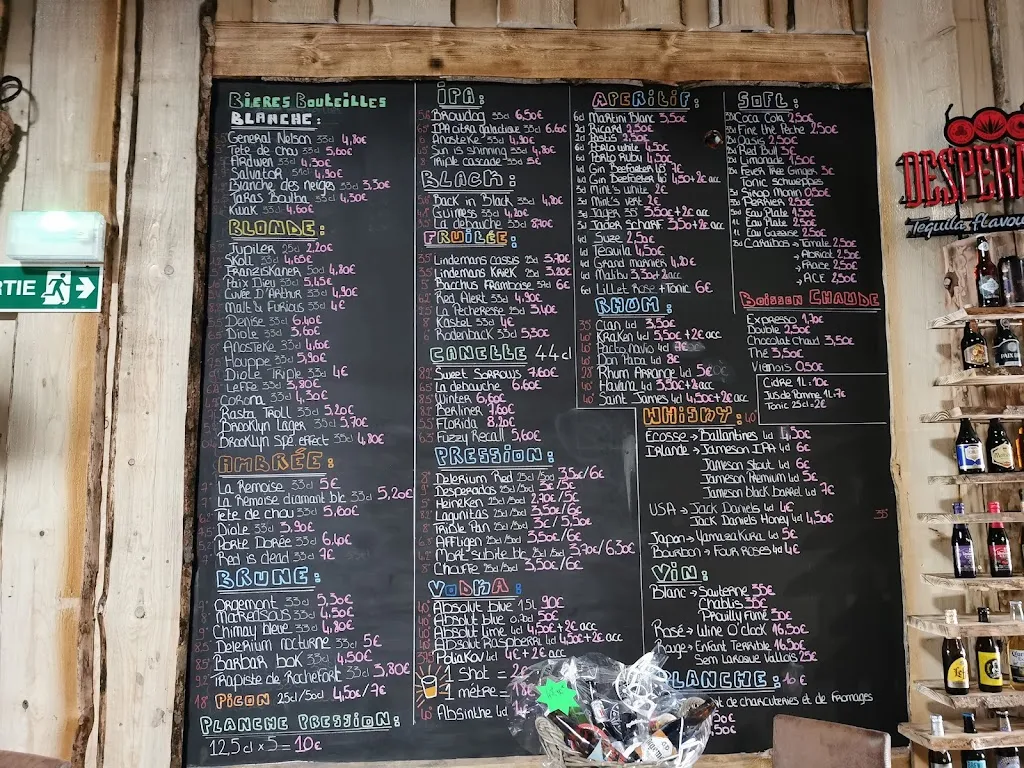 BIERES BOUTEILLES
BLANCHE:
General Nelson 33cl 4,80€
Tete de chou 33cl 5,60€
Ardwen 33cl 4,30€
Salvator 4,90€
Blanche des neiges 33cl 3,30€
Taras Boulba 33cl 4,30€
Kwak 33cl 4,60€
BLONDE:
Jupiler 25cl 2,20€
Skoll 33cl 4,65€
Franziskaner 50cl 4,80€
Paix Dieu 33cl 5,45€
Cuvée D'Arthur 33cl 4,90€
Malt & Furious 33cl 4€
Denise 33cl 6,40€
Triole 33cl 5,60€
Anosteke 33cl 4,60€
Houppe 33cl 5,90€
Diole Triple 33cl 4€
Leffe 33cl 3,80€
Corona 33cl 4,30€
Rasta Troll 33cl 5,20€
Brooklyn Lager 33cl 5,70€
Brooklyn Spé effect 33cl 4,80€
AMBRÉE:
La Remoise 33cl 5€
La Remoise diamant blc 33cl 5,20€
Tete de chou 33cl 5,60€
Diole 33cl 3,90€
Porte Dorée 33cl 6,40€
Red is dead 33cl 7€
BRUNE:
Orgemont 33cl 5,30€
Matremsous 33cl 4,30€
Chimay bleue 33cl 4,80€
Delerium nocturne 33cl 5€
Barbar bok 33cl 4,50€
Trapiste de Rochefort 33cl 5,80€
Picon 25cl/50cl 4,50€/7€
PLANCHE PRESSION:
12,5cl x 5 = 10€
IPA:
Brewdog 33cl 6,50€
IPA citra galactique 33cl 6,60€
Anosteke 33cl 4,80€
Sun is shinning 33cl 4,80€
Triple cascade 33cl 5€
BLACK:
Back in Black 33cl 4,80€
Guiness 33cl 4,80€
La debauche 33cl 8,70€
FRUITÉE:
Lindemans cassis 25cl 3,70€
Lindemans Kriek 25cl 3,20€
Bacchus Framboise 37cl 6€
Red Alert 33cl 4,90€
La Pecheresse 25cl 3,40€
Kastel 33cl 4€
Rodenback 33cl 5,30€
CANELLE 44cl
Sweet Sorrows 7,60€
La debauche 6,60€
Winter 6,60€
Berliner 7,60€
Florida 8,20€
Fuzzy Recall 5,60€
PRESSION:
Delerium Red 25cl/50cl 3,5€/6€
Desperados 25cl/50cl 3€/5€
Heineken 25cl/50cl 2,70€/5€
Lagunitas 25cl/50cl 3,50€/6€
Triple Pan 25cl/50cl 3€/5,50€
Affligen 25cl/50cl 3,50€/6€
Mort subite blc 25cl/50cl 3,70€/6,30€
Chouffe 25cl/50cl 3,50€/6€
VODKA:
Absolut blue 1.5L 90€
Absolut blue 0.7cl 50€
Absolut Lime 4cl 4,50€+2€ acc
Absolut Raspberry 4cl 4,50€+2€ acc
Poliakov 4cl 4€+2€ acc
1 Shot = 2€
1 mètre = 18€
Absinthe 4cl
APERITIF:
6cl Martini Blanc 3,50€
2cl Ricard 2,50€
2cl Pastis 2,50€
6cl Porto white 4,50€
6cl Porto Ruby 4,50€
4cl Gin Beefeater 7€
4cl Gin Beefeater 4,50€+2€ acc
3cl Mint's white 2€
3cl Mint's vert 2€
3cl Jager 35° 3,50€+2€ acc
3cl Jager scharf 3,50€+2€ acc
4cl Suze 2,50€
4cl Tequila 4,50€
4cl Grand marnier 4,20€
4cl Malibu 3,30€+2€acc
6cl Lillet Rose +Tonic 6€
RHUM:
Clan 4cl 3,50€
Kraken 4cl 5,50€+2€ acc
Pacto Navio 4cl
Don Papa 4cl 8€
Rhum Arrangé 4cl 5€
Havana 4cl 3,50€+2€acc
Saint James 4cl 4,50€+2€ acc
WHISKY: 40°
Ecosse → Ballantines 4cl 4,50€
Irlande → Jameson IPA 4cl 6€
Jameson Stout 4cl 6€
Jameson Premium 4cl 5€
Jameson black barrel 4cl 7€
USA → Jack Daniels 4cl 4€
Jack Daniels Honey 4cl 4,50€ 35
Japon → Yamazakura 4cl 5€
Bourbon → Four Roses 4cl 4€
VIN:
Blanc → Sauterne 35€
Chablis 35€
Prouilly Fumé 30€
Rosé → Wine O'clock 16,50€
Rouge → Enfant Terrible 16,50€
Sem Larosue Vallois 25€
PLANCHE: 10€
de charcuteries et de fromages
SOFT:
33cl Coca Cola 2,50€
Fine thé Peche 2,50€
Oasis 2,50€
Red Bull 3€
Limonade 1,50€
Fever Tree Ginger 3€
Tonic schweppes
Sirop Monin 0,50€
Perrier 2,50€
50cl Eau Plate 1,50€
1L Eau Plate 2€
Eau Gazeuse 2,50€
Caraïbos → Tomate 2,50€
→ Abricot 2,50€
→ Fraise 2,50€
→ ACE 2,50€
BOISSON CHAUDE
Expresso 1,70€
Double 2,50€
Chocolat Chaud 3,50€
Thé 3,50€
Viénois 0,50€
Cidre 1L: 10€
Jus de Pomme 1L: 7€
Tonic 25cl = 2€
RTIE
DESPER
Tequila flavou